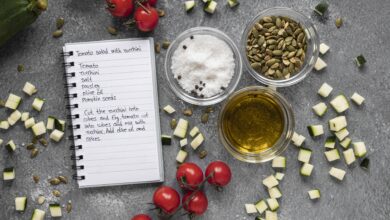 Tomato salad with zucchini
Tomato
zucchini
salt
parsley
olive oil
Pumpkin seeds
Cut the zucchini into
cubes and
cubes and mix with
zucchini. Add olive oil and
spices.